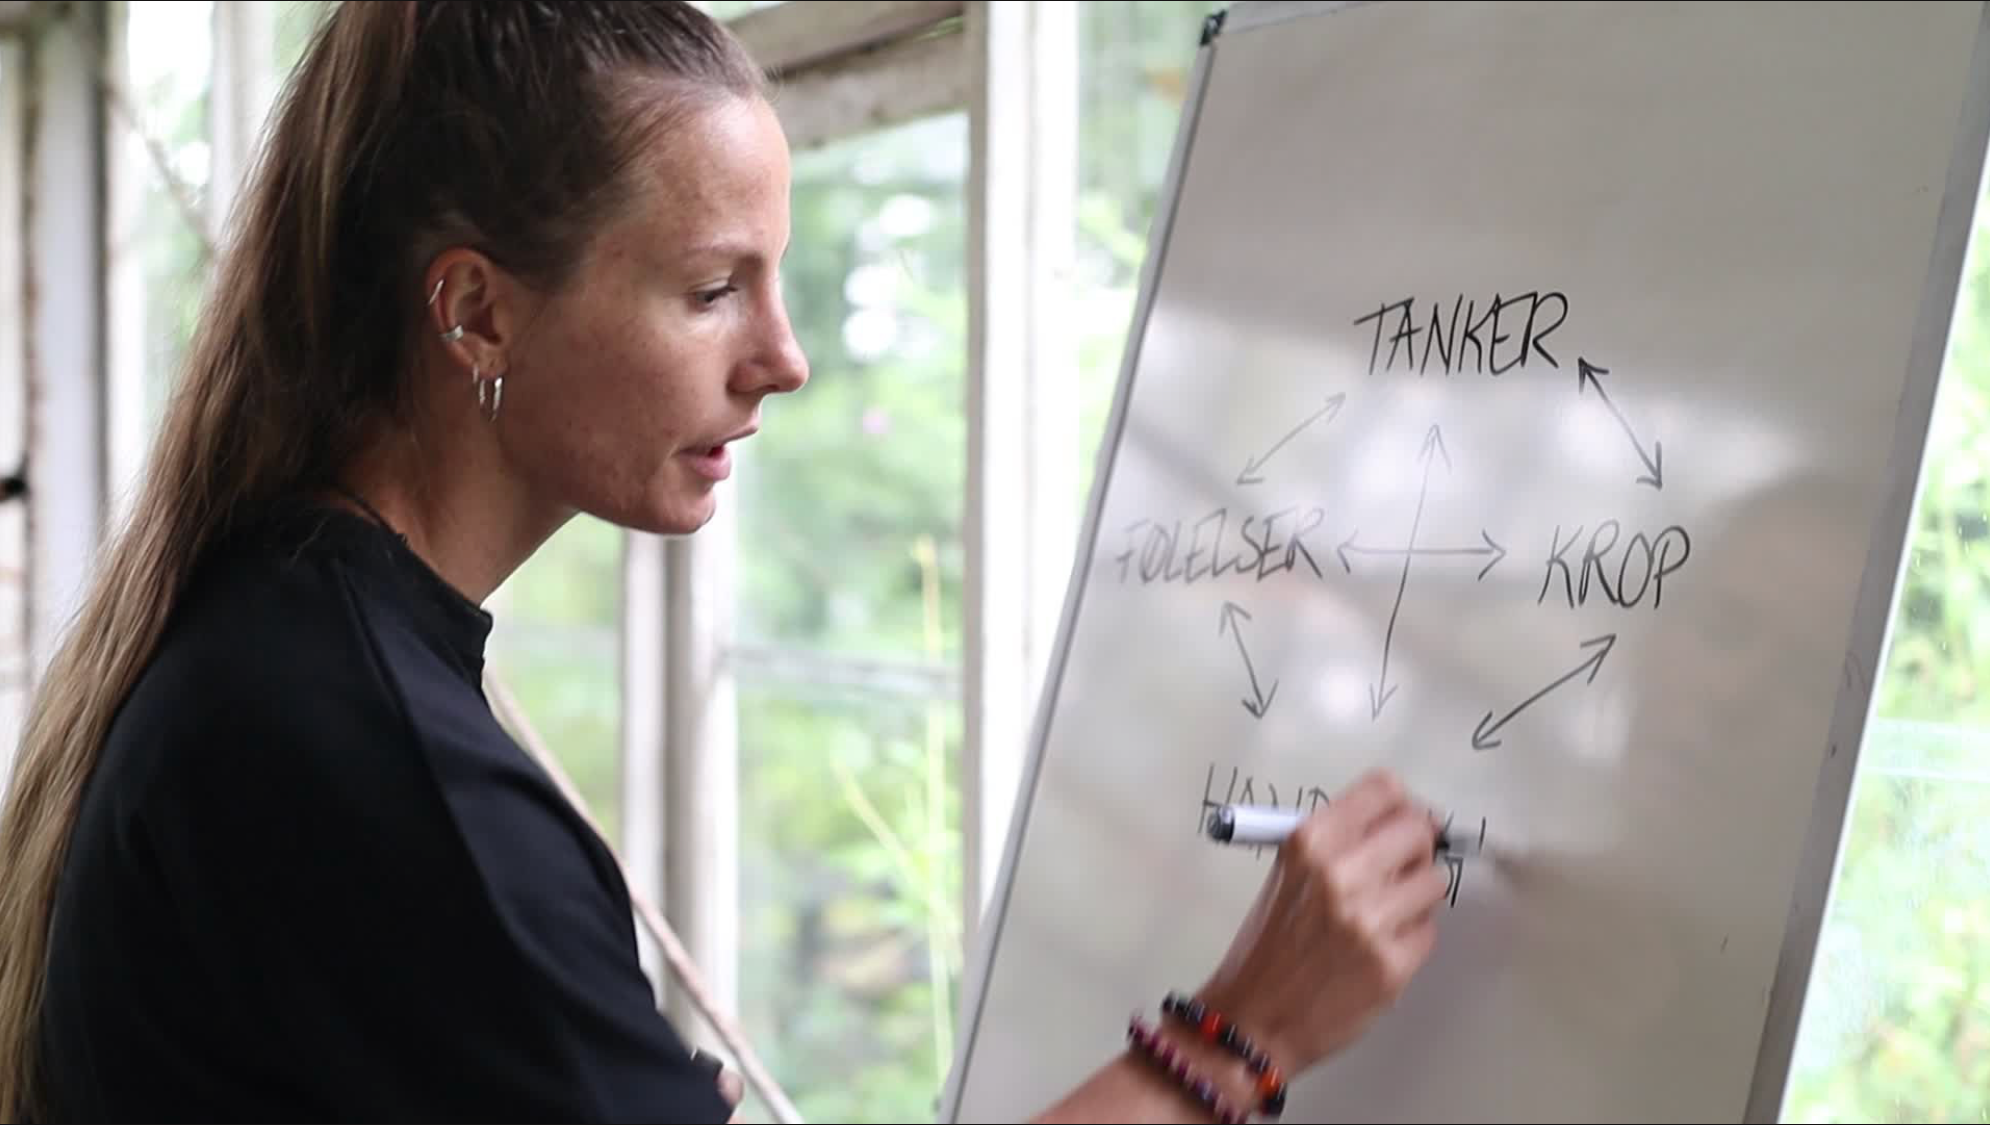 TANKER
FØLELSER KROP